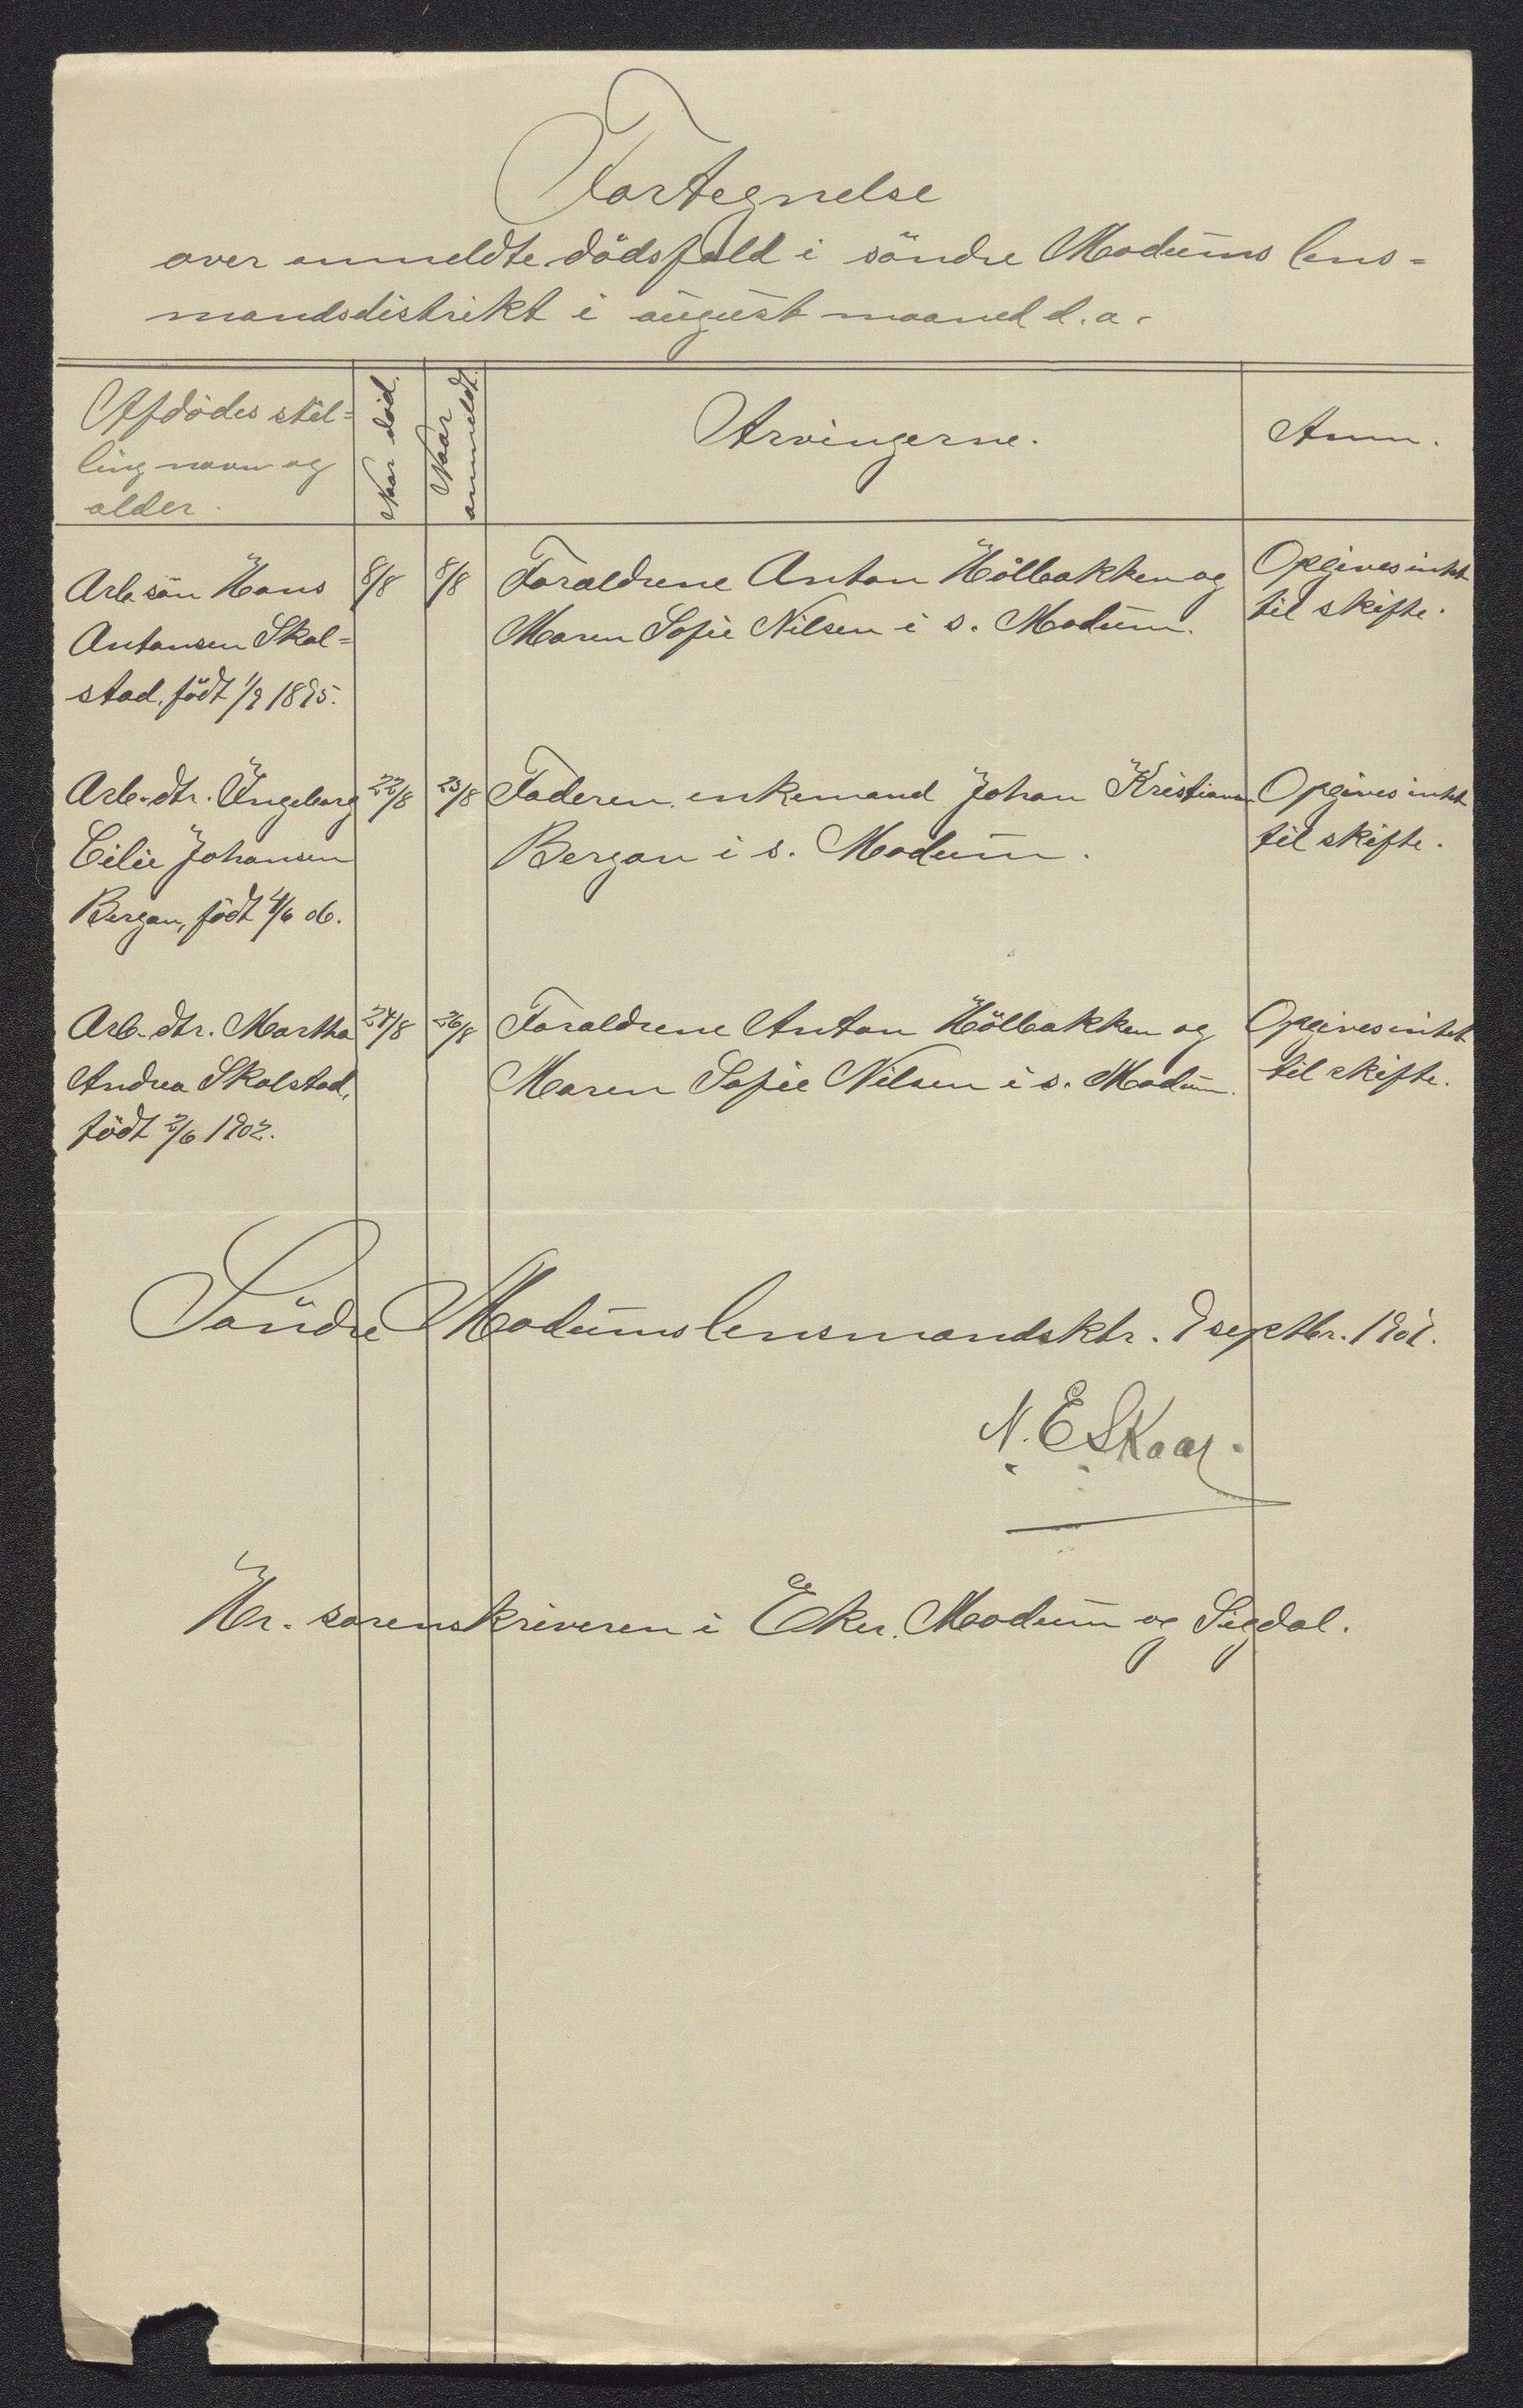 Fortegnelse
over anmeldte dödsfald i söndre Modums lens=
mandsdistrikt i august maaned d. a.
Afdödes stil=
ling navn og
alder.
Naar död.
Naar
anmeldt.
Arvingerne.
Anm.
Arb. sön Hans
Antonsen Skal=
stad, födt 1/9 1895.
8/8
8/8
Foraldrene Anton Hölbakken og
Maren Sofie Nilsen i s. Modum.
Opgives intet
til skifte.
Arb. dtr. Ingeborg
Cilie Johansen
Bergan, födt 4/6 06.
22/8
23/8
Faderen, enkemand Johan Kristiansen
Bergan i s. Modum.
Opgives intet
til skifte.
Arb. dtr. Martha
Andrea Skalstad,
födt 2/6 1902.
24/8
26/8
Foraldrene Anton Hölbakken og
Maren Sofie Nilsen i s. Modum.
Opgives intet
til skifte.
Söndre Modums lensmandsktr. 9 septbr. 1907.
N. E Skaar.
Hr. sorenskriveren i Eker, Modum og Sigdal.